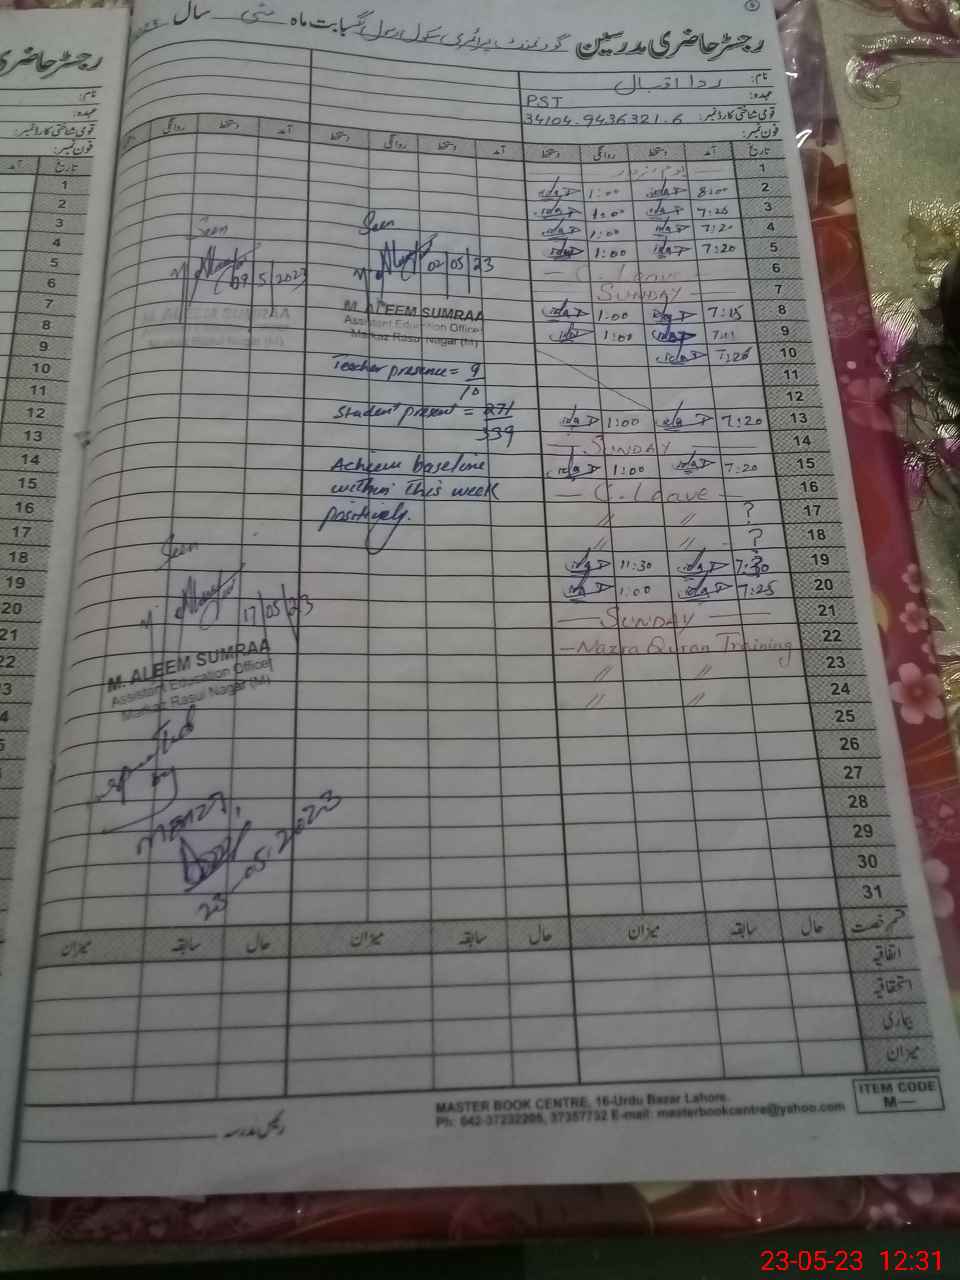 رجسٹر حاضری مدرسین گورنمنٹ پرائمری سکول رسول نگر بابت ماہ مئی سال 2023
نام: ردا اقبال
عہدہ: PST
قومی شناختی کارڈ نمبر: 34104.9436321.6
فون نمبر:
تاریخ آمد دستخط روانگی دستخط آمد دستخط روانگی دستخط آمد دستخط روانگی
1
2 8:00 1:00
3 7:25 1:00
4 7:20 1:00
5 7:20 1:00
6 — C. Leave —
7 — SUNDAY —
8 7:15 1:00
9 1:00
10 7:25
11
12
13 7:20 1:00
14 — SUNDAY —
15 7:20 1:00
16 — C. Leave —
17 ? // //
18 ? // //
19 7:30 11:30
20 7:25 1:00
21 — SUNDAY —
22 — Nazra Quran Training
23 // //
24 // //
25
26
27
28
29
30
31
Seen
02/05/23
M. ALEEM SUMRAA
Assistant Education Officer
Markaz Rasul Nagar (M)
Teacher presence = 9/10
Student present = 271/339
Acheive baseline
within this week
positively.
Seen
09/5/2023
M. ALEEM SUMRAA
Assistant Education Officer
Markaz Rasul Nagar (M)
Seen
17/05/23
M. ALEEM SUMRAA
Assistant Education Officer
Markaz Rasul Nagar (M)
by
23.05.2023
قسم رخصت حال سابقہ میزان حال سابقہ میزان حال سابقہ میزان
اتفاقیہ
استحقاقیہ
بیماری
میزان
رئیس مدرسہ
MASTER BOOK CENTRE, 16-Urdu Bazar Lahore.
Ph: 042-37232205, 37357732 E-mail: masterbookcentre@yahoo.com
ITEM CODE
M—
رجسٹر حاضری
نام:
عہدہ:
قومی شناختی کارڈ نمبر:
فون نمبر:
تاریخ آمد
1
2
3
4
5
6
7
8
9
10
11
12
13
14
15
16
17
18
19
20
21
22
23-05-23 12:31